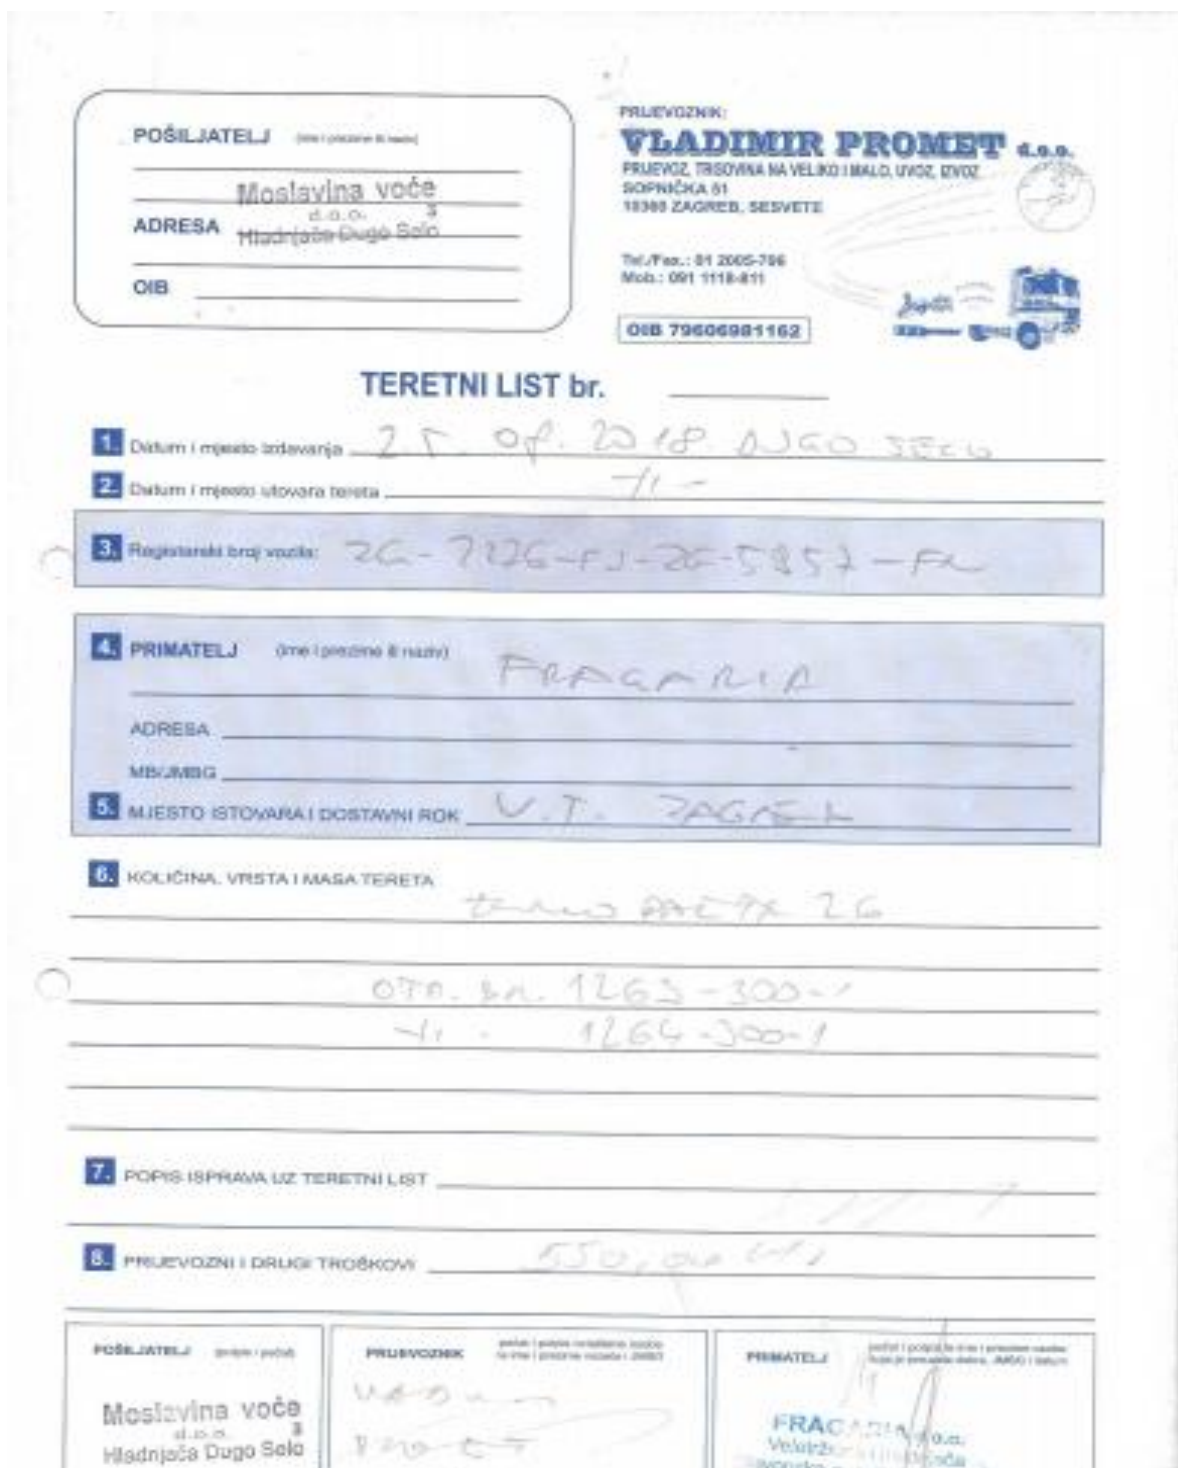 POŠILJATELJ (ime i prezime ili naziv)
Moslavina voće
d.o.o. 3
ADRESA Hladnjača Dugo Selo
OIB
PRIJEVOZNIK:
VLADIMIR PROMET d.o.o.
PRIJEVOZ, TRGOVINA NA VELIKO I MALO, UVOZ, IZVOZ
SOPNIČKA 51
10360 ZAGREB, SESVETE
Tel./Fax.: 01 2005-796
Mob.: 091 1118-811
OIB 79606981162
TERETNI LIST br.
1. Datum i mjesto izdavanja 25. 2018 DUGO SELO
2. Datum i mjesto utovara tereta -11-
3. Registarski broj vozila: ZG-7226-FJ-ZG-5857-
4. PRIMATELJ (ime i prezime ili naziv)
FRAGARIA
ADRESA
MB/JMBG
5. MJESTO ISTOVARA I DOSTAVNI ROK V.T. ZAGREB
6. KOLIČINA, VRSTA I MASA TERETA
26
OTP. BR. 1263-300-1
-11- 1264-300-1
7. POPIS ISPRAVA UZ TERETNI LIST
8. PRIJEVOZNI I DRUGI TROŠKOVI 550,00
POŠILJATELJ (potpis i pečat)
Moslavina voće
d.o.o. 3
Hladnjača Dugo Selo
PRIJEVOZNIK
PRIMATELJ
FRAGARIA d.o.o.